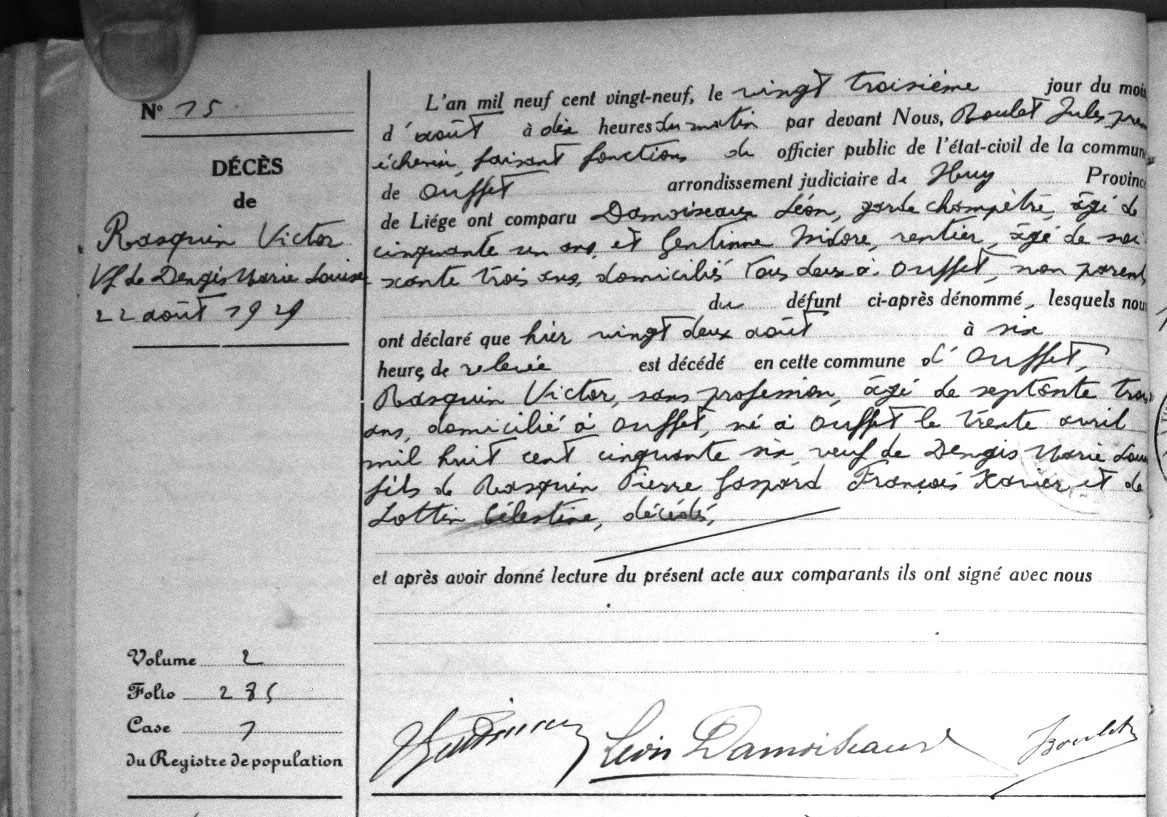 N° 15
DÉCÈS
de
Rasquin Victor
Vf de Dengis Marie Louise
22 août 1929
Volume 2
Folio 235
Case 1
du Registre de population
L'an mil neuf cent vingt-neuf, le vingt troisième jour du mois
d'août à dix heures du matin par devant Nous, Boulet Jules, prem
échevin, faisant fonctions de officier public de l'état-civil de la commune
de Ouffet arrondissement judiciaire de Huy Province
de Liége ont comparu Damoiseaux Léon, garde champêtre, âgé de
cinquante un ans, et Gentinne Isidore, rentier, âgé de soi-
xante trois ans, domiciliés tous deux à Ouffet, non parents
du défunt ci-après dénommé, lesquels nous
ont déclaré que hier vingt deux août à six
heures de relevée est décédé en cette commune d'Ouffet,
Rasquin Victor, sans profession, âgé de septante trois
ans, domicilié à Ouffet, né à Ouffet le trente avril
mil huit cent cinquante six veuf de Dengis Marie Loui
fils de Rasquin Pierre Gaspard François Xavier et de
Lottin Célestine, décédés,
et après avoir donné lecture du présent acte aux comparants ils ont signé avec nous
Léon Damoiseaux JBoulet